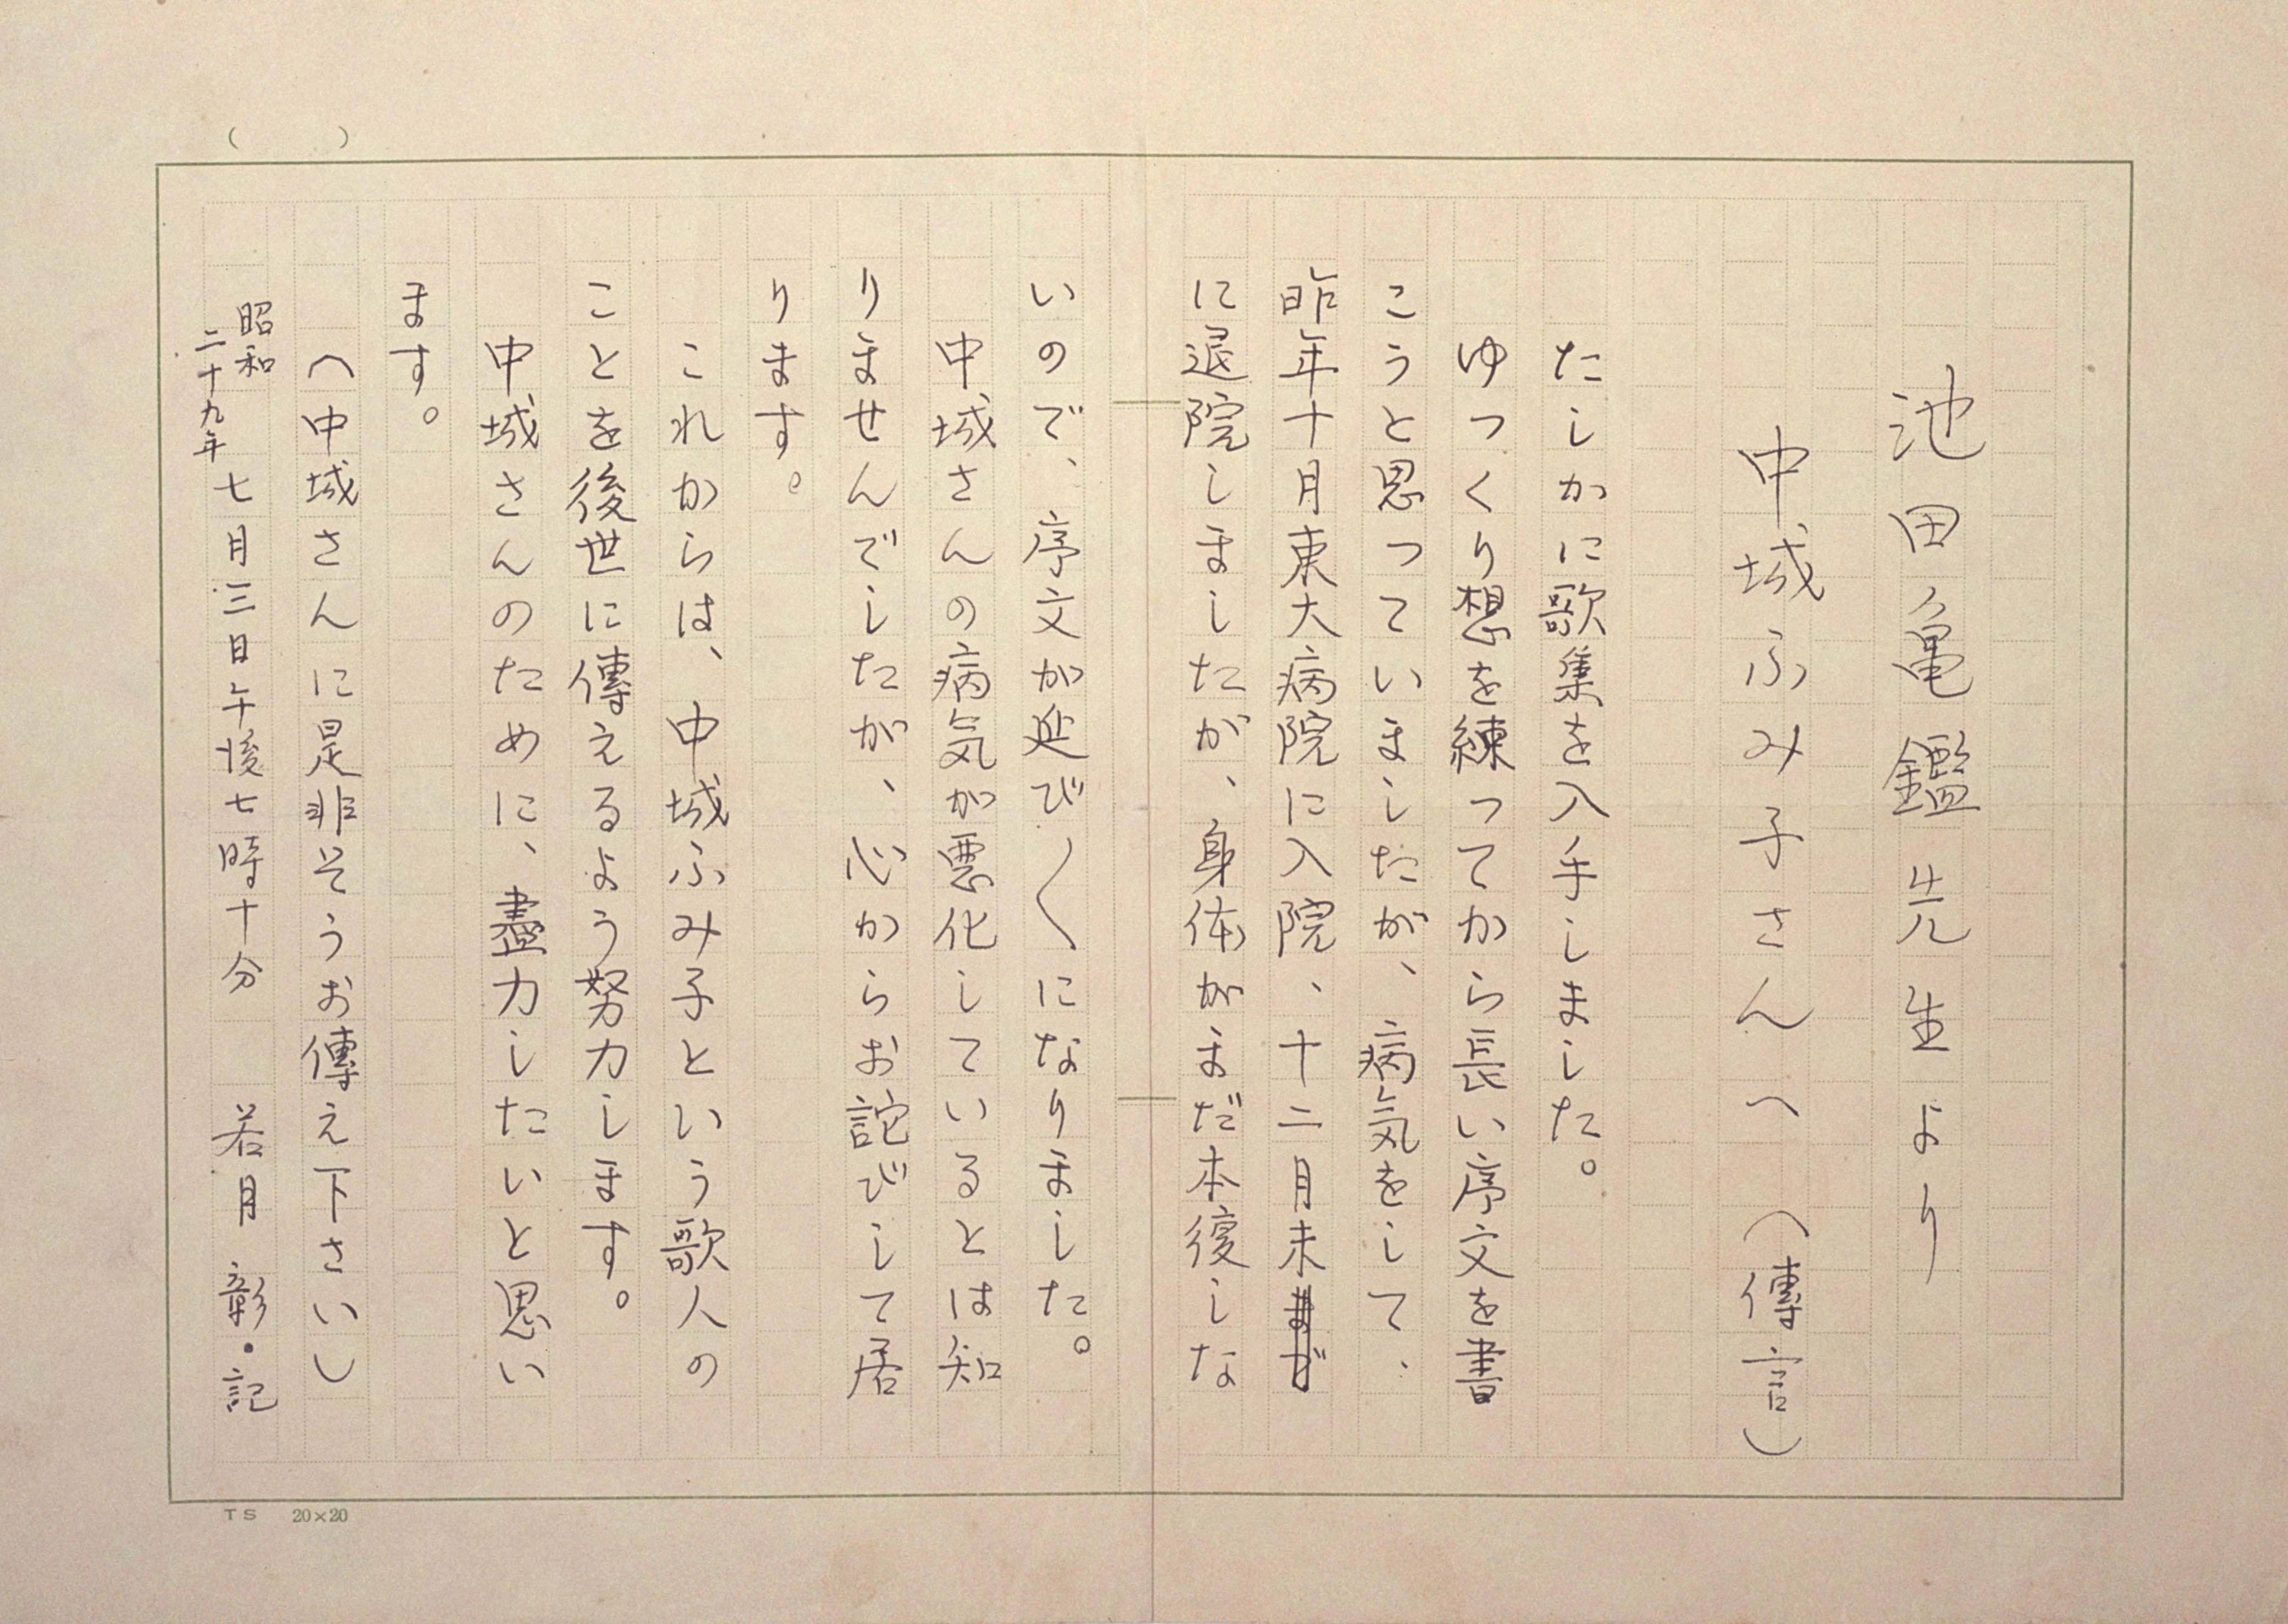 池田亀鑑先生より
中城ふみ子さんへ （傳言）
たしかに歌集を入手しました。
ゆっくり想を練ってから長い序文を書
こうと思っていましたが、病気をして、
昨年十月東大病院に入院、十二月末
に退院しましたが、身体がまだ本復しな
いので、序文が延び〱になりました。
中城さんの病気が悪化しているとは知
りませんでしたが、心からお詫びして居
ります。
これからは、中城ふみ子という歌人の
ことを後世に傳えるよう努力します。
中城さんのために、盡力したいと思い
ます。
（中城さんに是非そうお傳え下さい）
昭和二十九年七月三日午後七時十分 若月 彰・記
( )
TS 20×20